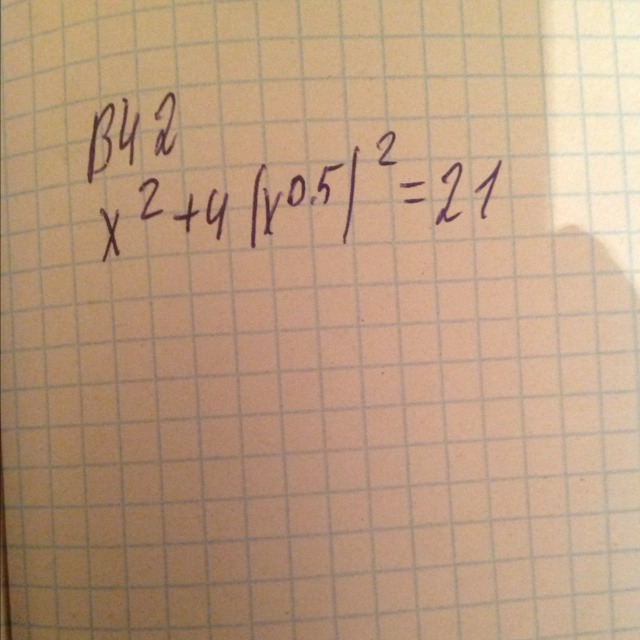 В42
x² + 4 (x^0.5)² = 21